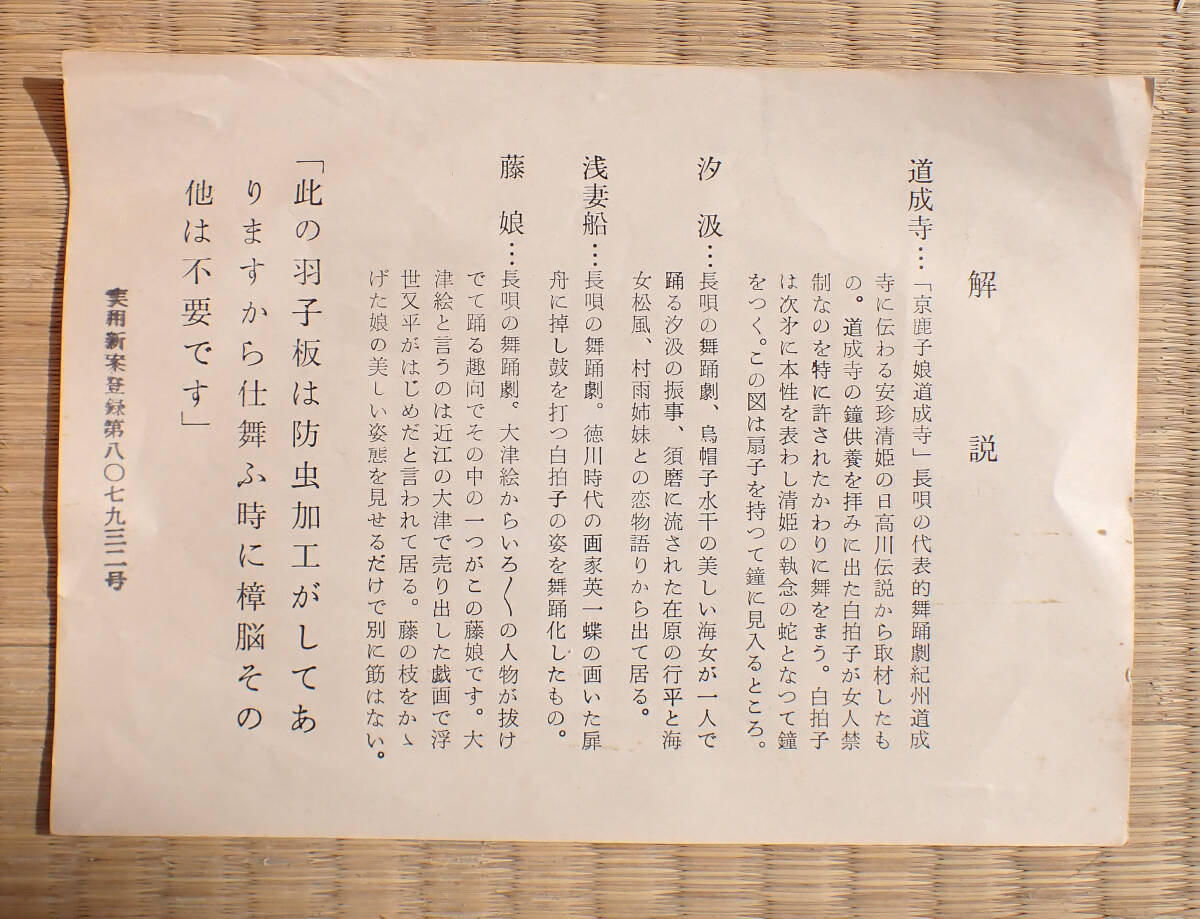 解説
道成寺…「京鹿子娘道成寺」長唄の代表的舞踊劇紀州道成
寺に伝わる安珍清姫の日高川伝説から取材したも
の。道成寺の鐘供養を拝みに出た白拍子が女人禁
制なのを特に許されたかわりに舞をまう。白拍子
は次㐧に本性を表わし清姫の執念の蛇となつて鐘
をつく。この図は扇子を持つて鐘に見入るところ。
汐汲…長唄の舞踊劇、烏帽子水干の美しい海女が一人で
踊る汐汲の振事、須磨に流された在原の行平と海
女松風、村雨姉妹との恋物語りから出て居る。
浅妻船…長唄の舞踊劇。徳川時代の画家英一蝶の画いた扉
舟に掉し鼓を打つ白拍子の姿を舞踊化したもの。
藤娘…長唄の舞踊劇。大津絵からいろ〱の人物が抜け
でて踊る趣向でその中の一つがこの藤娘です。大
津絵と言うのは近江の大津で売り出した戯画で浮
世又平がはじめだと言われて居る。藤の枝をかゝ
げた娘の美しい姿態を見せるだけで別に筋はない。
「此の羽子板は防虫加工がしてあ
りますから仕舞ふ時に樟脳その
他は不要です」
実用新案登録第八〇七九三二号